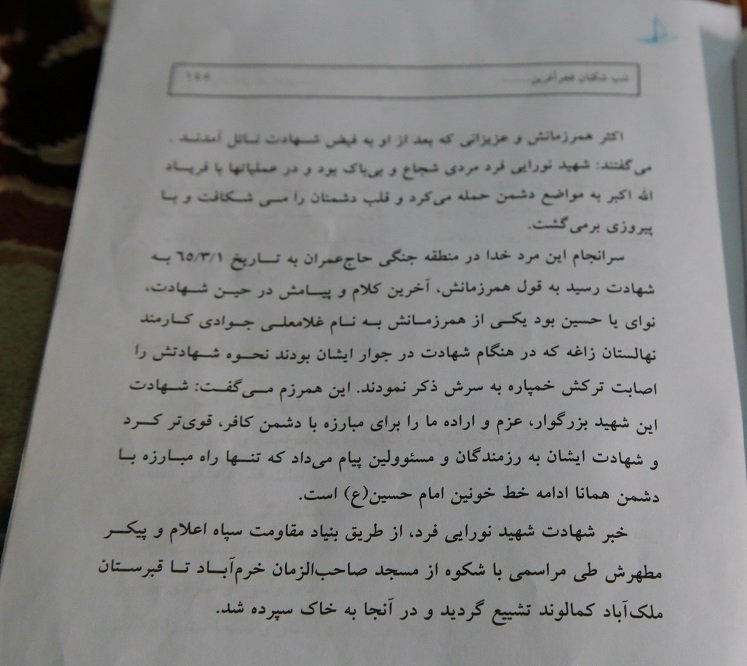 شب شکنان فجرآفرین ............ ۱۵۵
اکثر همرزمانش و عزیزانی که بعد از او به فیض شهادت نائل آمدند .
می‌گفتند: شهید نورایی فرد مردی شجاع و بی‌باک بود و در عملیاتها با فریاد
الله اکبر به مواضع دشمن حمله می‌کرد و قلب دشمنان را می شکافت و با
پیروزی برمی‌گشت.
سرانجام این مرد خدا در منطقه جنگی حاج‌عمران به تاریخ ۶۵/۳/۱ به
شهادت رسید به قول همرزمانش، آخرین کلام و پیامش در حین شهادت،
نوای یا حسین بود یکی از همرزمانش به نام غلامعلی جوادی کارمند
نهالستان زاغه که در هنگام شهادت در جوار ایشان بودند نحوه شهادتش را
اصابت ترکش خمپاره به سرش ذکر نمودند. این همرزم می‌گفت: شهادت
این شهید بزرگوار، عزم و اراده ما را برای مبارزه با دشمن کافر، قوی‌تر کرد
و شهادت ایشان به رزمندگان و مسئوولین پیام می‌داد که تنها راه مبارزه با
دشمن همانا ادامه خط خونین امام حسین(ع) است.
خبر شهادت شهید نورایی فرد، از طریق بنیاد مقاومت سپاه اعلام و پیکر
مطهرش طی مراسمی با شکوه از مسجد صاحب‌الزمان خرم‌آباد تا قبرستان
ملک‌آباد کمالوند تشییع گردید و در آنجا به خاک سپرده شد.